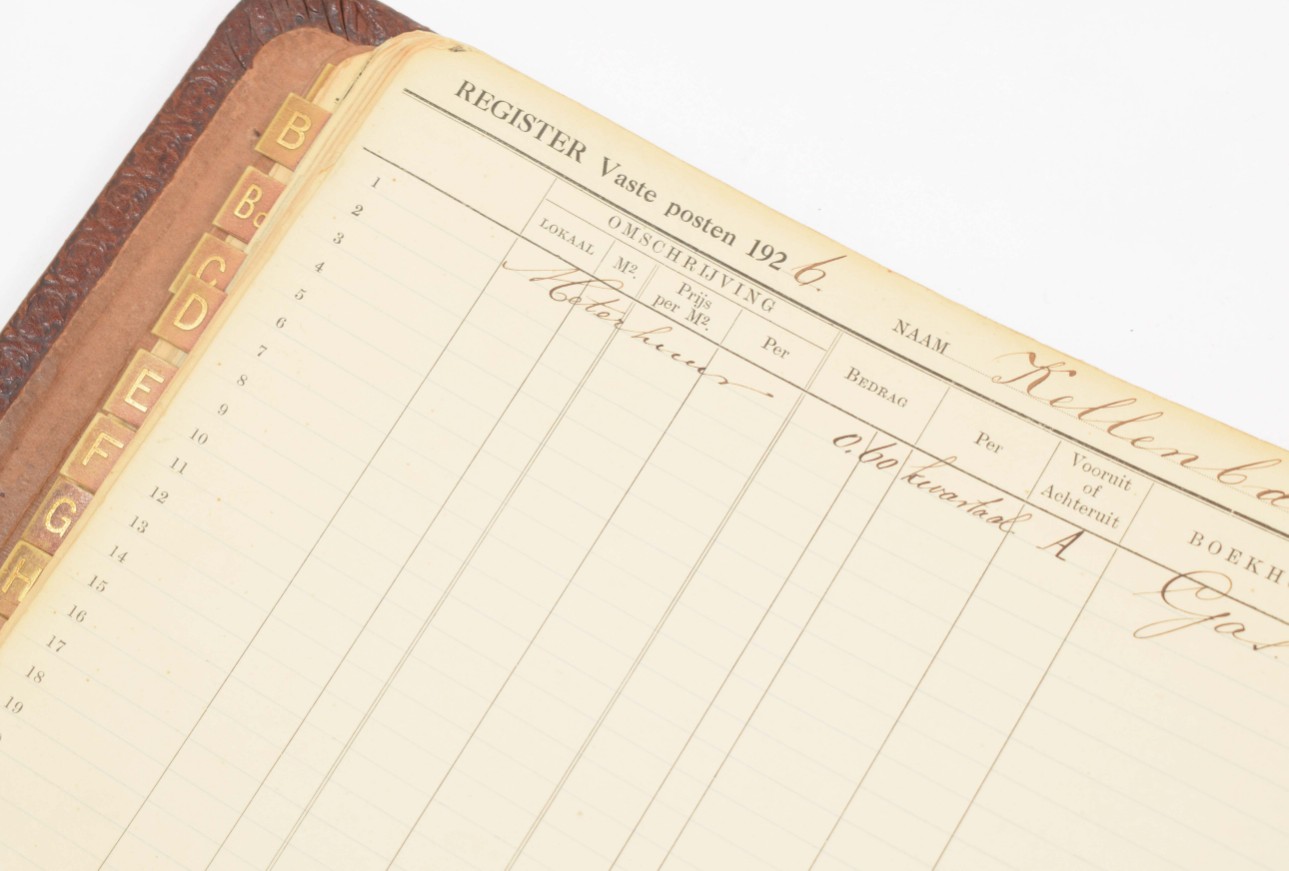 REGISTER Vaste posten 1926.
NAAM Kellenba
OMSCHRIJVING
LOKAAL M². Prijs per M². Per BEDRAG Per Vooruit of Achteruit BOEKH
1 Meterhuur 0.60 kwartaal A Gas.
2
3
4
5
6
7
8
9
10
11
12
13
14
15
16
17
18
19
B
Bo
C
D
E
F
G
H